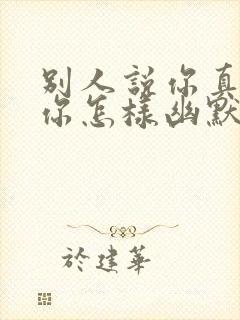 別人說你真
你怎樣幽默
於建華